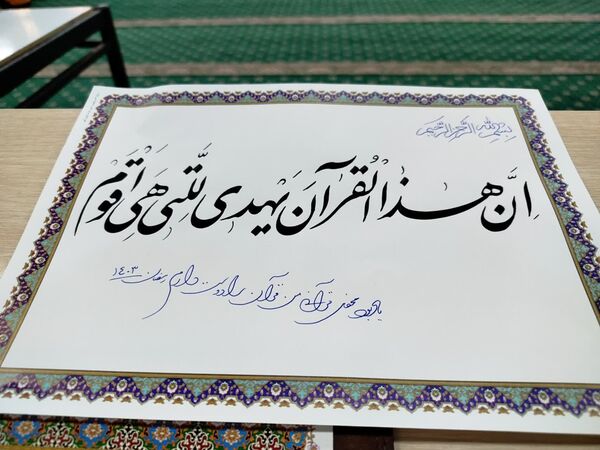 بسم الله الرحمن الرحیم
اِنَّ هٰذَا الْقُرآنَ یَهدی لِلَّتی هَیِ اَقوَم
یادبود محفل قرآنی من قرآن را دوست دارم رمضان ۱۴۰۳